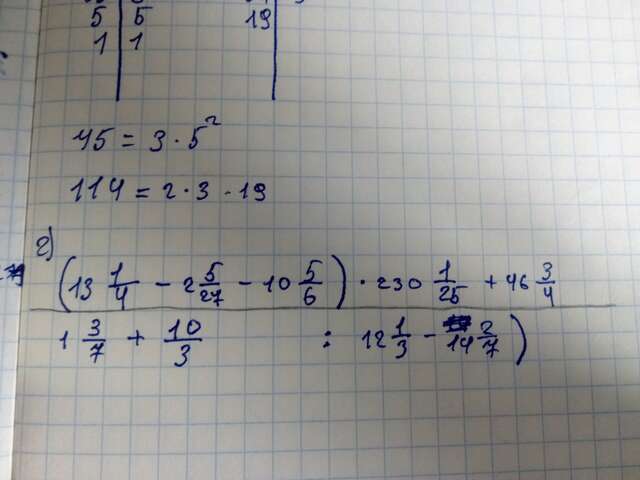 5 | 5 19
1 | 1
75 = 3 · 5²
114 = 2 · 3 · 19
г)
(13 1/4 - 2 5/27 - 10 5/6) · 230 1/25 + 46 3/4
1 3/7 + 10/3 : 12 1/3 - 14 2/7)